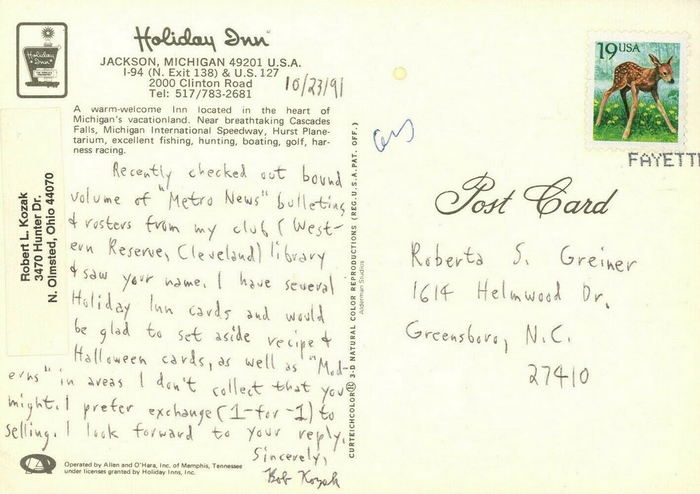 Holiday Inn
JACKSON, MICHIGAN 49201 U.S.A.
I-94 (N. Exit 138) & U.S. 127
2000 Clinton Road
Tel: 517/783-2681
10/23/91
A warm-welcome Inn located in the heart of
Michigan's vacationland. Near breathtaking Cascades
Falls, Michigan International Speedway, Hurst Plane-
tarium, excellent fishing, hunting, boating, golf, har-
ness racing.
Recently checked out bound
volume of "Metro News" bulletins
& rosters from my club (West-
ern Reserve, Cleveland) library
& saw your name. I have several
Holiday Inn cards and would
be glad to set aside recipe &
Halloween cards, as well as "Mod-
erns" in areas I don't collect that you
might. I prefer exchange (1-for-1) to
selling. I look forward to your reply.
Sincerely,
Bob Kozak
Operated by Allen and O'Hara, Inc. of Memphis, Tennessee
under licenses granted by Holiday Inns, Inc.
Robert L. Kozak
3470 Hunter Dr.
N. Olmsted, Ohio 44070
CURTEICHCOLOR® 3-D NATURAL COLOR REPRODUCTIONS (REG. U.S.A. PAT. OFF.)
Alderman Studios
19 USA
FAYETT
Post Card
Roberta S. Greiner
1614 Helmwood Dr.
Greensboro, N.C.
27410